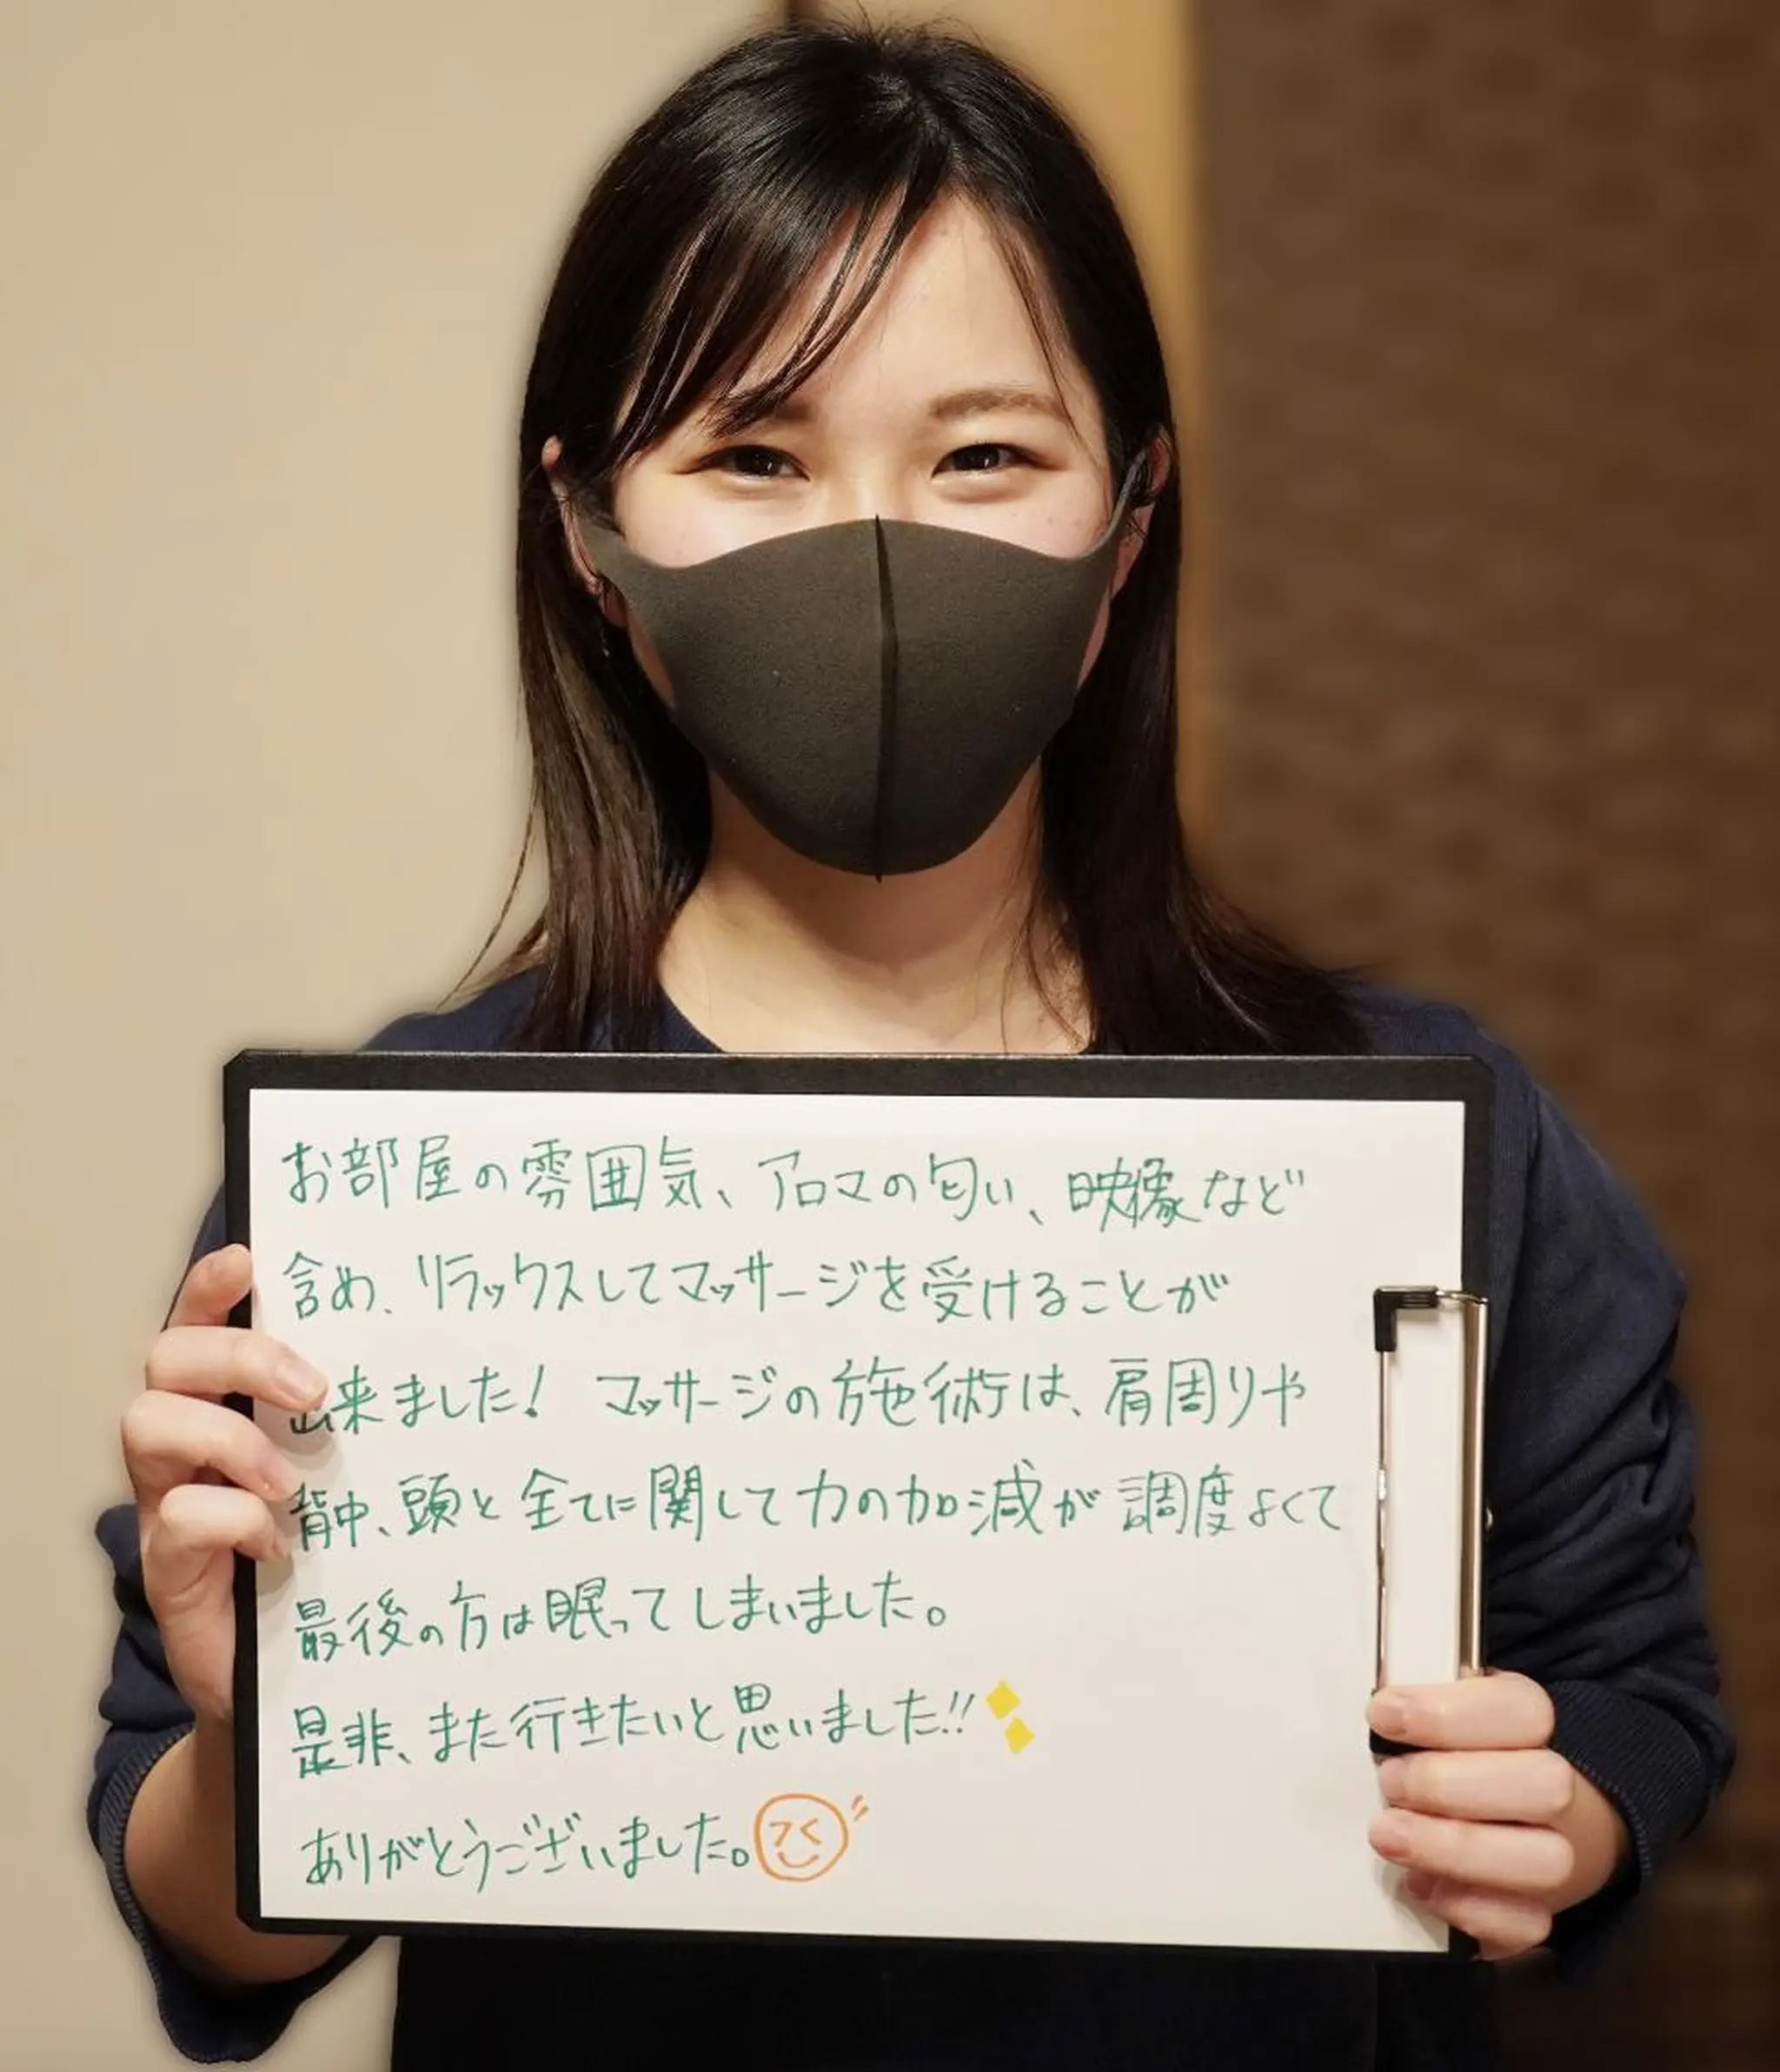 お部屋の雰囲気、アロマの匂い、映像など
含め、リラックスしてマッサージを受けることが
出来ました! マッサージの施術は、肩周りや
背中、頭と全てに関して力の加減が調度よくて
最後の方は眠ってしまいました。
是非、また行きたいと思いました!!
ありがとうございました。